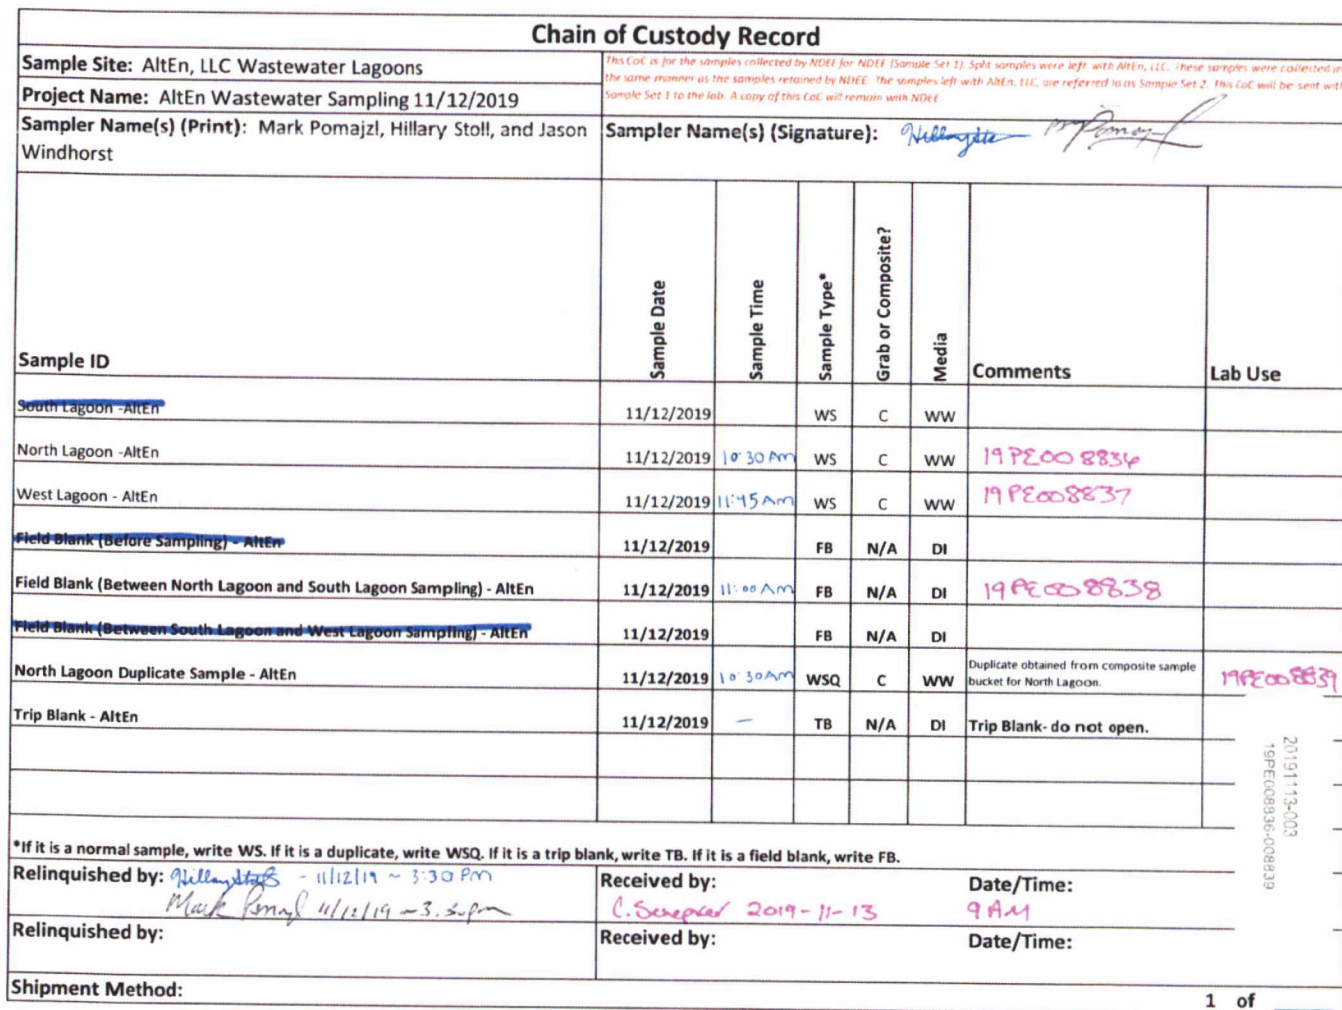 Chain of Custody Record
Sample Site: AltEn, LLC Wastewater Lagoons
This CoC is for the samples collected by NDEE for NDEE (Sample Set 1). Split samples were left with AltEn, LLC. These samples were collected in
the same manner as the samples retained by NDEE. The samples left with AltEn, LLC, are referred to as Sample Set 2. This CoC will be sent with
Sample Set 1 to the lab. A copy of this CoC will remain with NDEE
Project Name: AltEn Wastewater Sampling 11/12/2019
Sampler Name(s) (Print): Mark Pomajzl, Hillary Stoll, and Jason
Windhorst
Sampler Name(s) (Signature):
Sample ID Sample Date Sample Time Sample Type* Grab or Composite? Media Comments Lab Use
South Lagoon -AltEn 11/12/2019 WS C WW
North Lagoon -AltEn 11/12/2019 10:30 AM WS C WW 19PE008836
West Lagoon - AltEn 11/12/2019 11:45 AM WS C WW 19PE008837
Field Blank (Before Sampling) - AltEn 11/12/2019 FB N/A DI
Field Blank (Between North Lagoon and South Lagoon Sampling) - AltEn 11/12/2019 11:00 AM FB N/A DI 19PE008838
Field Blank (Between South Lagoon and West Lagoon Sampling) - AltEn 11/12/2019 FB N/A DI
North Lagoon Duplicate Sample - AltEn 11/12/2019 10:30AM WSQ C WW Duplicate obtained from composite sample
bucket for North Lagoon. 19PE008839
Trip Blank - AltEn 11/12/2019 – TB N/A DI Trip Blank- do not open.
20191113-003
19PE008836-008839
*If it is a normal sample, write WS. If it is a duplicate, write WSQ. If it is a trip blank, write TB. If it is a field blank, write FB.
Relinquished by: Hillary Stoll - 11/12/19 ~ 3:30 PM
Mark Pomajzl 11/12/19 ~3:30pm
Received by: Date/Time:
C. 2019-11-13 9 AM
Relinquished by: Received by: Date/Time:
Shipment Method:
1 of